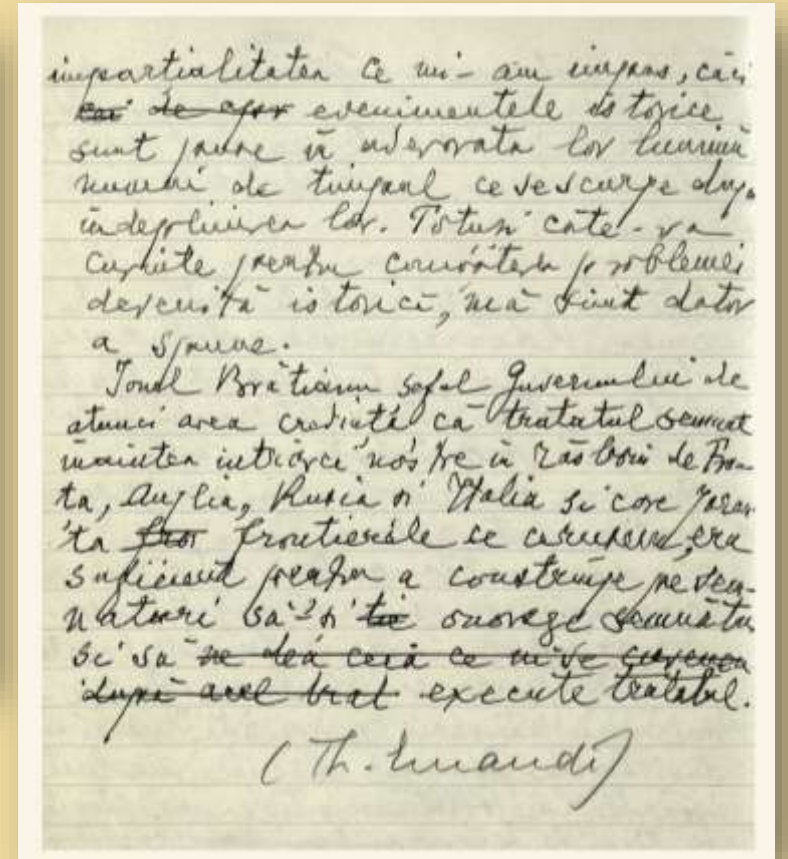 impartialitatea ce mi-am impus, căci
evenimentele istorice
sunt puse in adevarata lor lumină
numai de timpul ce se scurge după
indeplinirea lor. Totusi cate-va
cuvinte pentru cunoasterea problemei
istorică, mă simt dator
a spune.
Ionel Brătianu seful Guvernului de
atunci avea credintă că tratatul semnat
inaintea intrărei nostre in răsboiu de Fran-
ta, Anglia, Rusia si Italia si care garan-
ta frontierele ce ceruseram, era
suficient pentru a constrânge pe sem-
natari să-si onoreze semnătura
si să ne dea ceia ce ni se cuvenea
după acel trat execute tratatul.
(Th. Emandi)